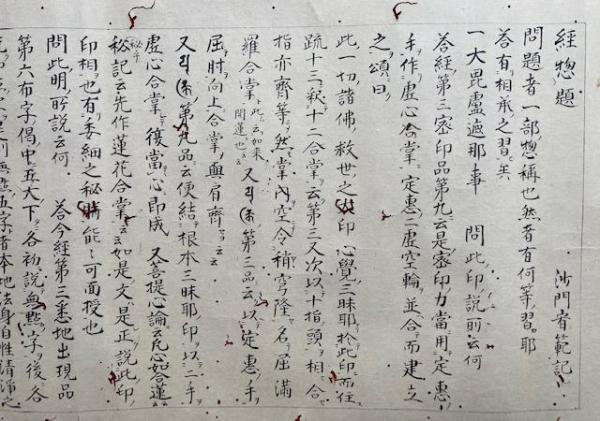 經惣題　沙門省範記
問題者一部惣稱也然者有何等習耶
答有相承之習矣
一大毘盧遮那事　問此印說前云何
答經第三密印品第九云是密印力當用定惠
手作虛心合掌定惠二虛空輪並合而建立
之頌曰
此一切諸佛救世之大印心覺三昧耶於此印而住
䟽十三釈十二合掌云第三又次以十指頭相合
指亦齊等然掌內空令稍穹隆名屈滿
羅合掌此云如來開蓮也云云又第三品云以定惠手
屈肘向上合掌與肩齊云云
又第九品云便結根本三昧耶印以二手
虛心合掌復當心即成又菩提心論云凡心如合蓮
秘記云先作蓮花合掌云云如是文是正說此印
印相也有委細之秘能能可面授也
問此明所說云何　答今經第三悉地出現品
第六布字偈中五大下各初說無點字後各
無五字者本地法身自性清淨之